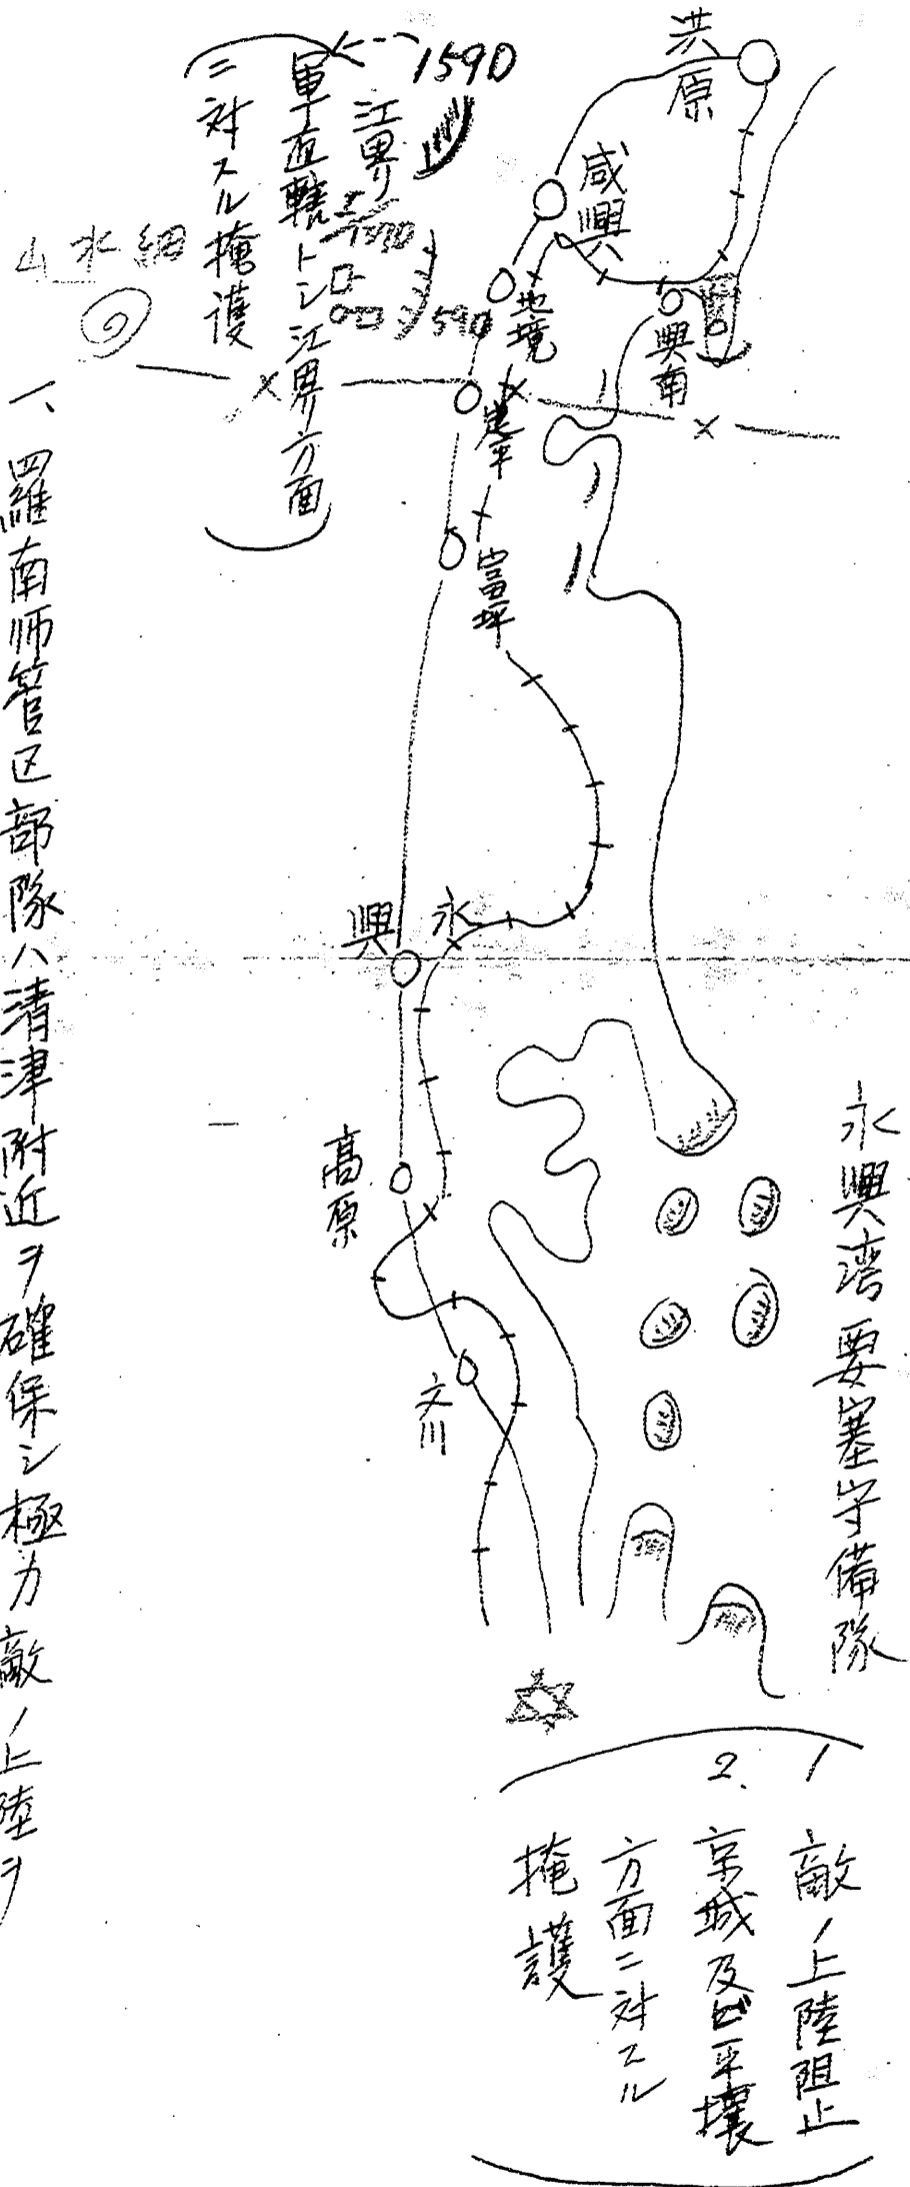 洪原
咸興
地境
興南
富坪
永
興
高原
文川
1590
江界
軍直轄トシ江界方面
ニ対スル掩護
590
永興湾要塞守備隊
1 敵ノ上陸阻止
2. 京城及ビ平壌
方面ニ対スル
掩護
一、四羅南師管区部隊ハ清津附近ヲ確保シ極力敵ノ上陸ヲ